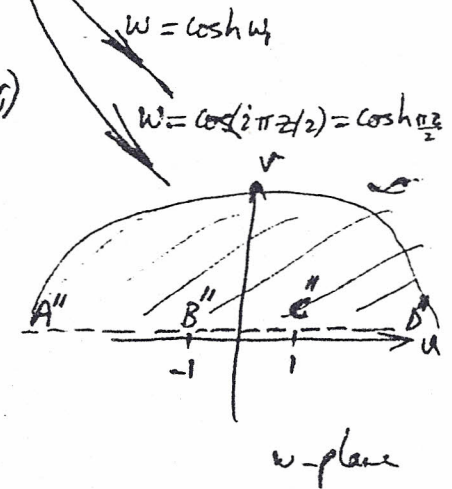 w = cosh w₁
w = cos(iπz/2) = cosh πz/2
v
A'' B'' C'' D''
u
-1 1
w-plane